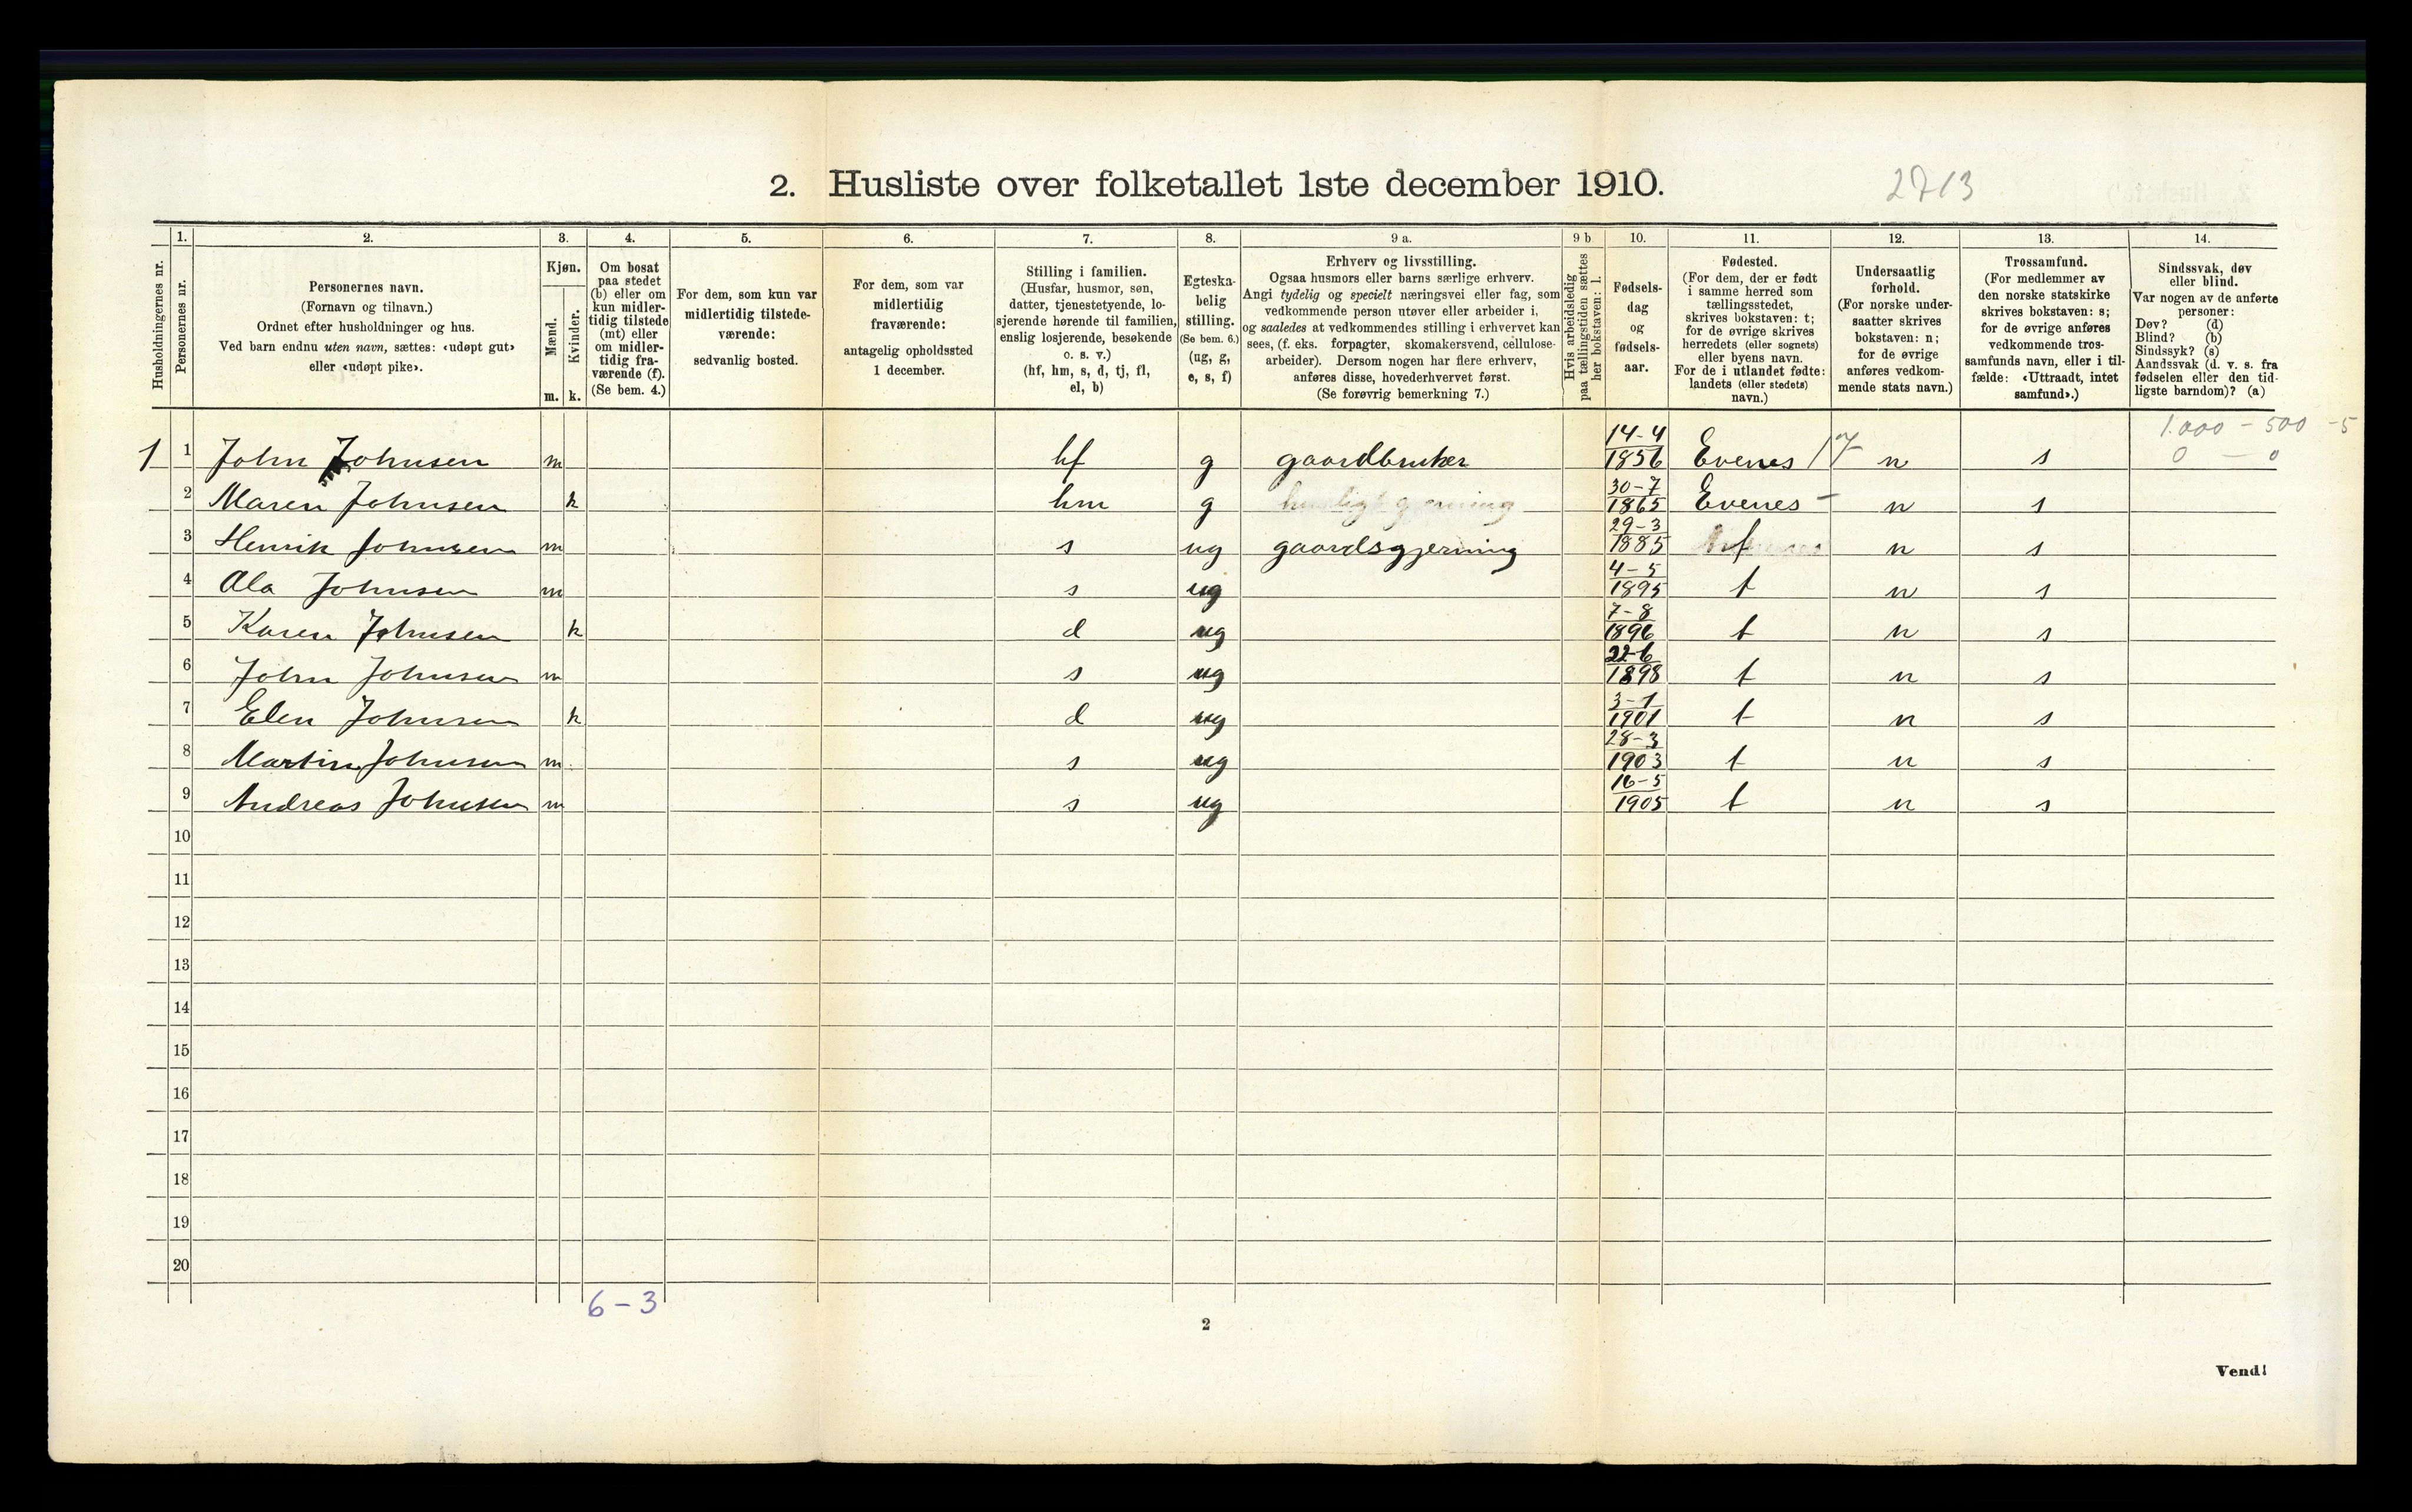 2. Husliste over folketallet 1ste december 1910.
2713
Husholdningernes nr.
1.
Personernes nr.
2.
Personernes navn.
(Fornavn og tilnavn.)
Ordnet efter husholdninger og hus.
Ved barn endnu uten navn, sættes: «udøpt gut»
eller «udøpt pike».
3.
Kjøn.
Mænd.
Kvinder.
m. k.
4.
Om bosat
paa stedet
(b) eller om
kun midler-
tidig tilstede
(mt) eller
om midler-
tidig fra-
værende (f).
(Se bem. 4.)
5.
For dem, som kun var
midlertidig tilstede-
værende:
sedvanlig bosted.
6.
For dem, som var
midlertidig
fraværende:
antagelig opholdssted
1 december.
7.
Stilling i familien.
(Husfar, husmor, søn,
datter, tjenestetyende, lo-
sjerende hørende til familien,
enslig losjerende, besøkende
o. s. v.)
(hf, hm, s, d, tj, fl,
el, b)
8.
Egteska-
belig
stilling.
(Se bem. 6.)
(ug, g,
e, s, f)
9 a.
Erhverv og livsstilling.
Ogsaa husmors eller barns særlige erhverv.
Angi tydelig og specielt næringsvei eller fag, som
vedkommende person utøver eller arbeider i,
og saaledes at vedkommendes stilling i erhvervet kan
sees, (f. eks. forpagter, skomakersvend, cellulose-
arbeider). Dersom nogen har flere erhverv,
anføres disse, hovederhvervet først.
(Se forøvrig bemerkning 7.)
9 b
Hvis arbeidsledig
paa tællingstiden sættes
her bokstaven: l.
10.
Fødsels-
dag
og
fødsels-
aar.
11.
Fødested.
(For dem, der er født
i samme herred som
tællingsstedet,
skrives bokstaven: t;
for de øvrige skrives
herredets (eller sognets)
eller byens navn.
For de i utlandet fødte:
landets (eller stedets)
navn.)
12.
Undersaatlig
forhold.
(For norske under-
saatter skrives
bokstaven: n;
for de øvrige
anføres vedkom-
mende stats navn.)
13.
Trossamfund.
(For medlemmer av
den norske statskirke
skrives bokstaven: s;
for de øvrige anføres
vedkommende tros-
samfunds navn, eller i til-
fælde: «Uttraadt, intet
samfund».)
14.
Sindssvak, døv
eller blind.
Var nogen av de anførte
personer:
Døv? (d)
Blind? (b)
Sindssyk? (s)
Aandssvak (d. v. s. fra
fødselen eller den tid-
ligste barndom)? (a)
1.000 - 500 - 5
0 - 0
1 1 John Johnsen m hf g gaardbruker 14-4 1856 Evenes n s
2 Maren Johnsen k hm g 30-7 1865 Evenes n s
3 Henrik Johnsen m s ug gaardsgjerning 29-3 1885 t n s
4 Ola Johnsen m s ug 4-5 1895 t n s
5 Karen Johnsen k d ug 7-8 1896 t n s
6 John Johnsen m s ug 22-6 1898 t n s
7 Elen Johnsen k d ug 3-1 1901 t n s
8 Martin Johnsen m s ug 28-3 1903 t n s
9 Andreas Johnsen m s ug 16-5 1905 t n s
10
11
12
13
14
15
16
17
18
19
20
6-3
2
Vend!